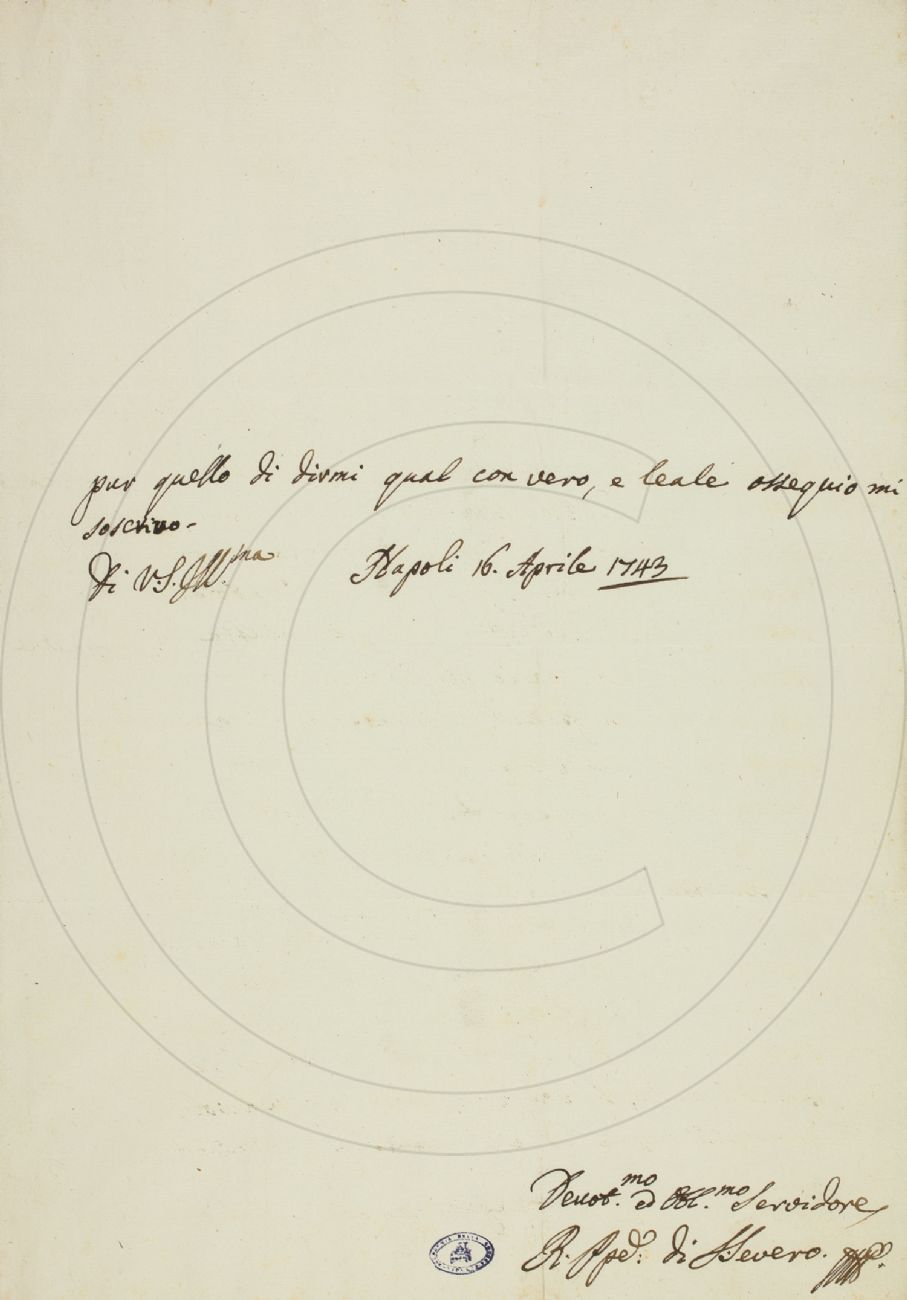 pur quello di dirmi qual con vero, e leale ossequio mi
soscrivo-
Di V.S. Ill.ma Napoli 16. Aprile 1743
Devot.mo ed Obl.mo Servidore
R. di S. Severo.